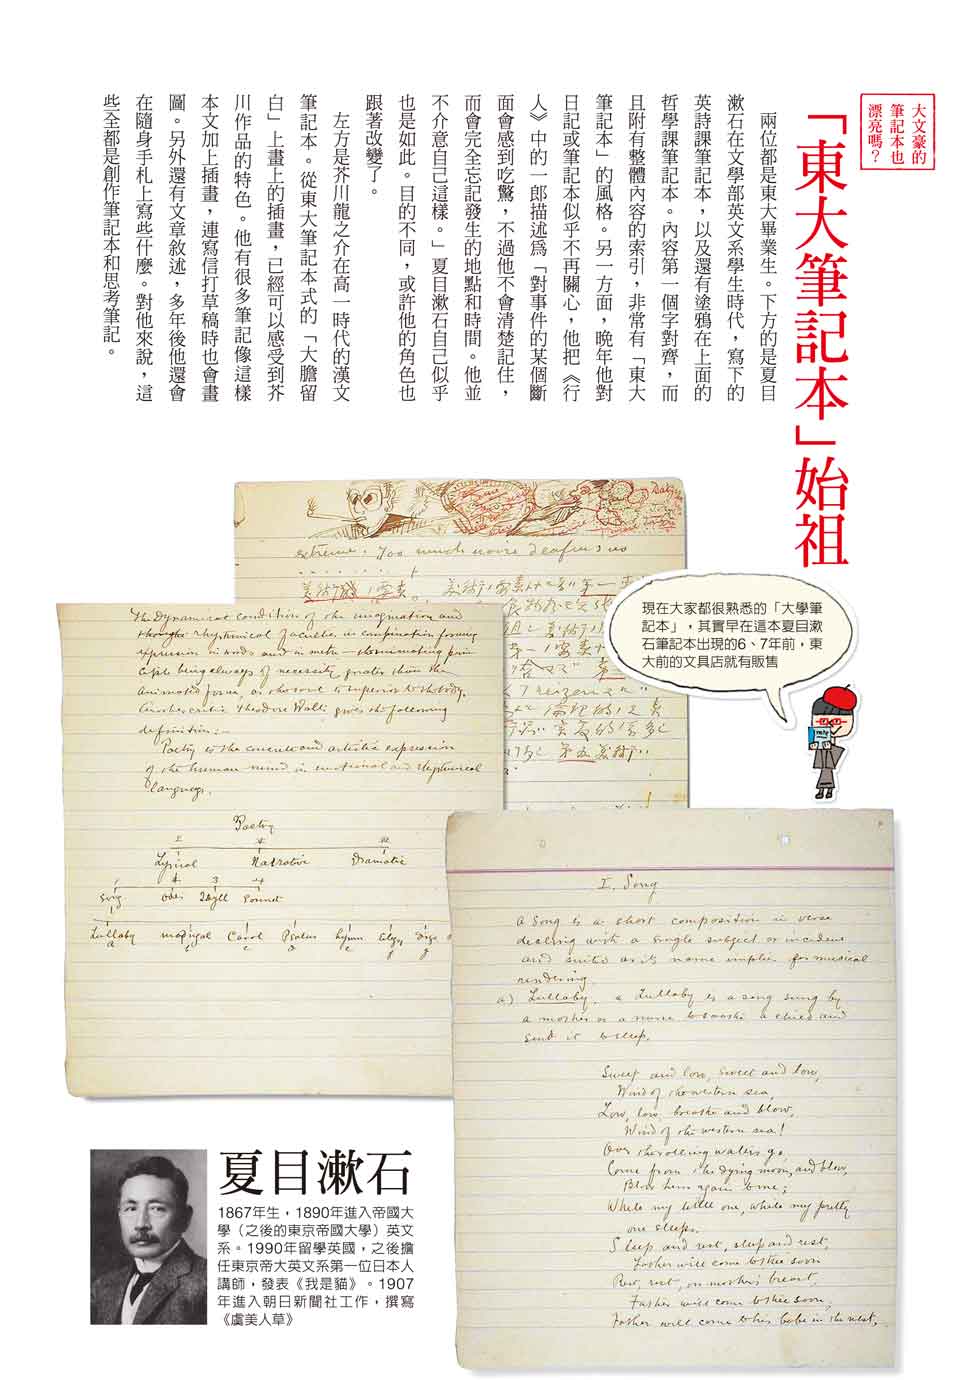 大文豪的
筆記本也
漂亮嗎？
「東大筆記本」始祖
兩位都是東大畢業生。下方的是夏目
漱石在文學部英文系學生時代，寫下的
英詩課筆記本，以及還有塗鴉在上面的
哲學課筆記本。內容第一個字對齊，而
且附有整體內容的索引，非常有「東大
筆記本」的風格。另一方面，晚年他對
日記或筆記本似乎不再關心，他把《行
人》中的一郎描述為「對事件的某個斷
面會感到吃驚，不過他不會清楚記住，
而會完全忘記發生的地點和時間。他並
不介意自己這樣。」夏目漱石自己似乎
也是如此。目的不同，或許他的角色也
跟著改變了。
左方是芥川龍之介在高一時代的漢文
筆記本。從東大筆記本式的「大膽留
白」上畫上的插畫，已經可以感受到芥
川作品的特色。他有很多筆記像這樣
本文加上插畫，連寫信打草稿時也會畫
圖。另外還有文章敘述，多年後他還會
在隨身手札上寫些什麼。對他來說，這
些全都是創作筆記本和思考筆記。
extreme. Too much noise deafens us
現在大家都很熟悉的「大學筆
記本」，其實早在這本夏目漱
石筆記本出現的6、7年前，東
大前的文具店就有販售
The dynamical condition of the imagination and
thought rhythmical faculties in combination forming
expression in words and in metre — the animating prin
ciple being always of necessity greater than the
animated form, as the soul is superior to the body.
Another critic Theodore Watts gives the following
definition:—
Poetry is the concrete and artistic expression
of the human mind in emotional and rhythmical
language.
Poetry
Lyrical Narrative Dramatic
Song Odes Idyll Sonnet
Lullaby madrigal Carol Psalms Hymn Elegy Dirge
I. Song
A song is a short composition in verse
dealing with a single subject or incident
and suited as its name implies for musical
rendering.
a) Lullaby. a Lullaby is a song sung by
a mother or a nurse to soothe a child and
send it to sleep.
Sweet and low, sweet and low,
Wind of the western sea,
Low, low, breathe and blow,
Wind of the western sea!
Over the rolling waters go,
Come from the dying moon, and blow,
Blow him again to me;
While my little one, while my pretty
one sleeps.
Sleep and rest, sleep and rest,
Father will come to thee soon
Rest, rest, on mother's breast,
Father will come to thee soon;
Father will come to his babe in the nest,
夏目漱石
1867年生，1890年進入帝國大
學（之後的東京帝國大學）英文
系。1990年留學英國，之後擔
任東京帝大英文系第一位日本人
講師，發表《我是貓》。1907
年進入朝日新聞社工作，撰寫
《虞美人草》